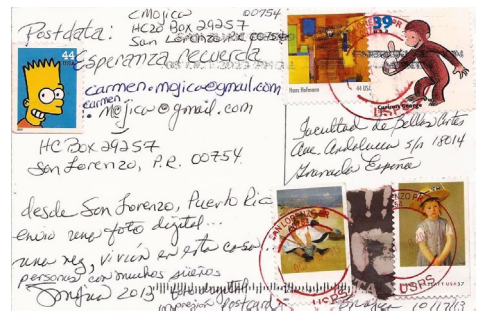 CMojica 00754
Postdata: HC20 Box 29257
San Lorenzo, P.R. 00754
Esperanza recuerda
carmen.mojica@gmail.com
carmen.
mojica@gmail.com
HC Box 29257
San Lorenzo, P.R. 00754
desde San Lorenzo, Puerto Rico
envio una foto digital...
una vez, vivía en esta casa...
personas con muchos sueños
2013
impresión Postcard
44
39
Hans Hofmann 44 USA
Curious George
Facultad de Bellas Artes
Ave. Andalucia s/n 18014
Granada España
SAN LORENZO PR
USPS
USPS
10/17/13